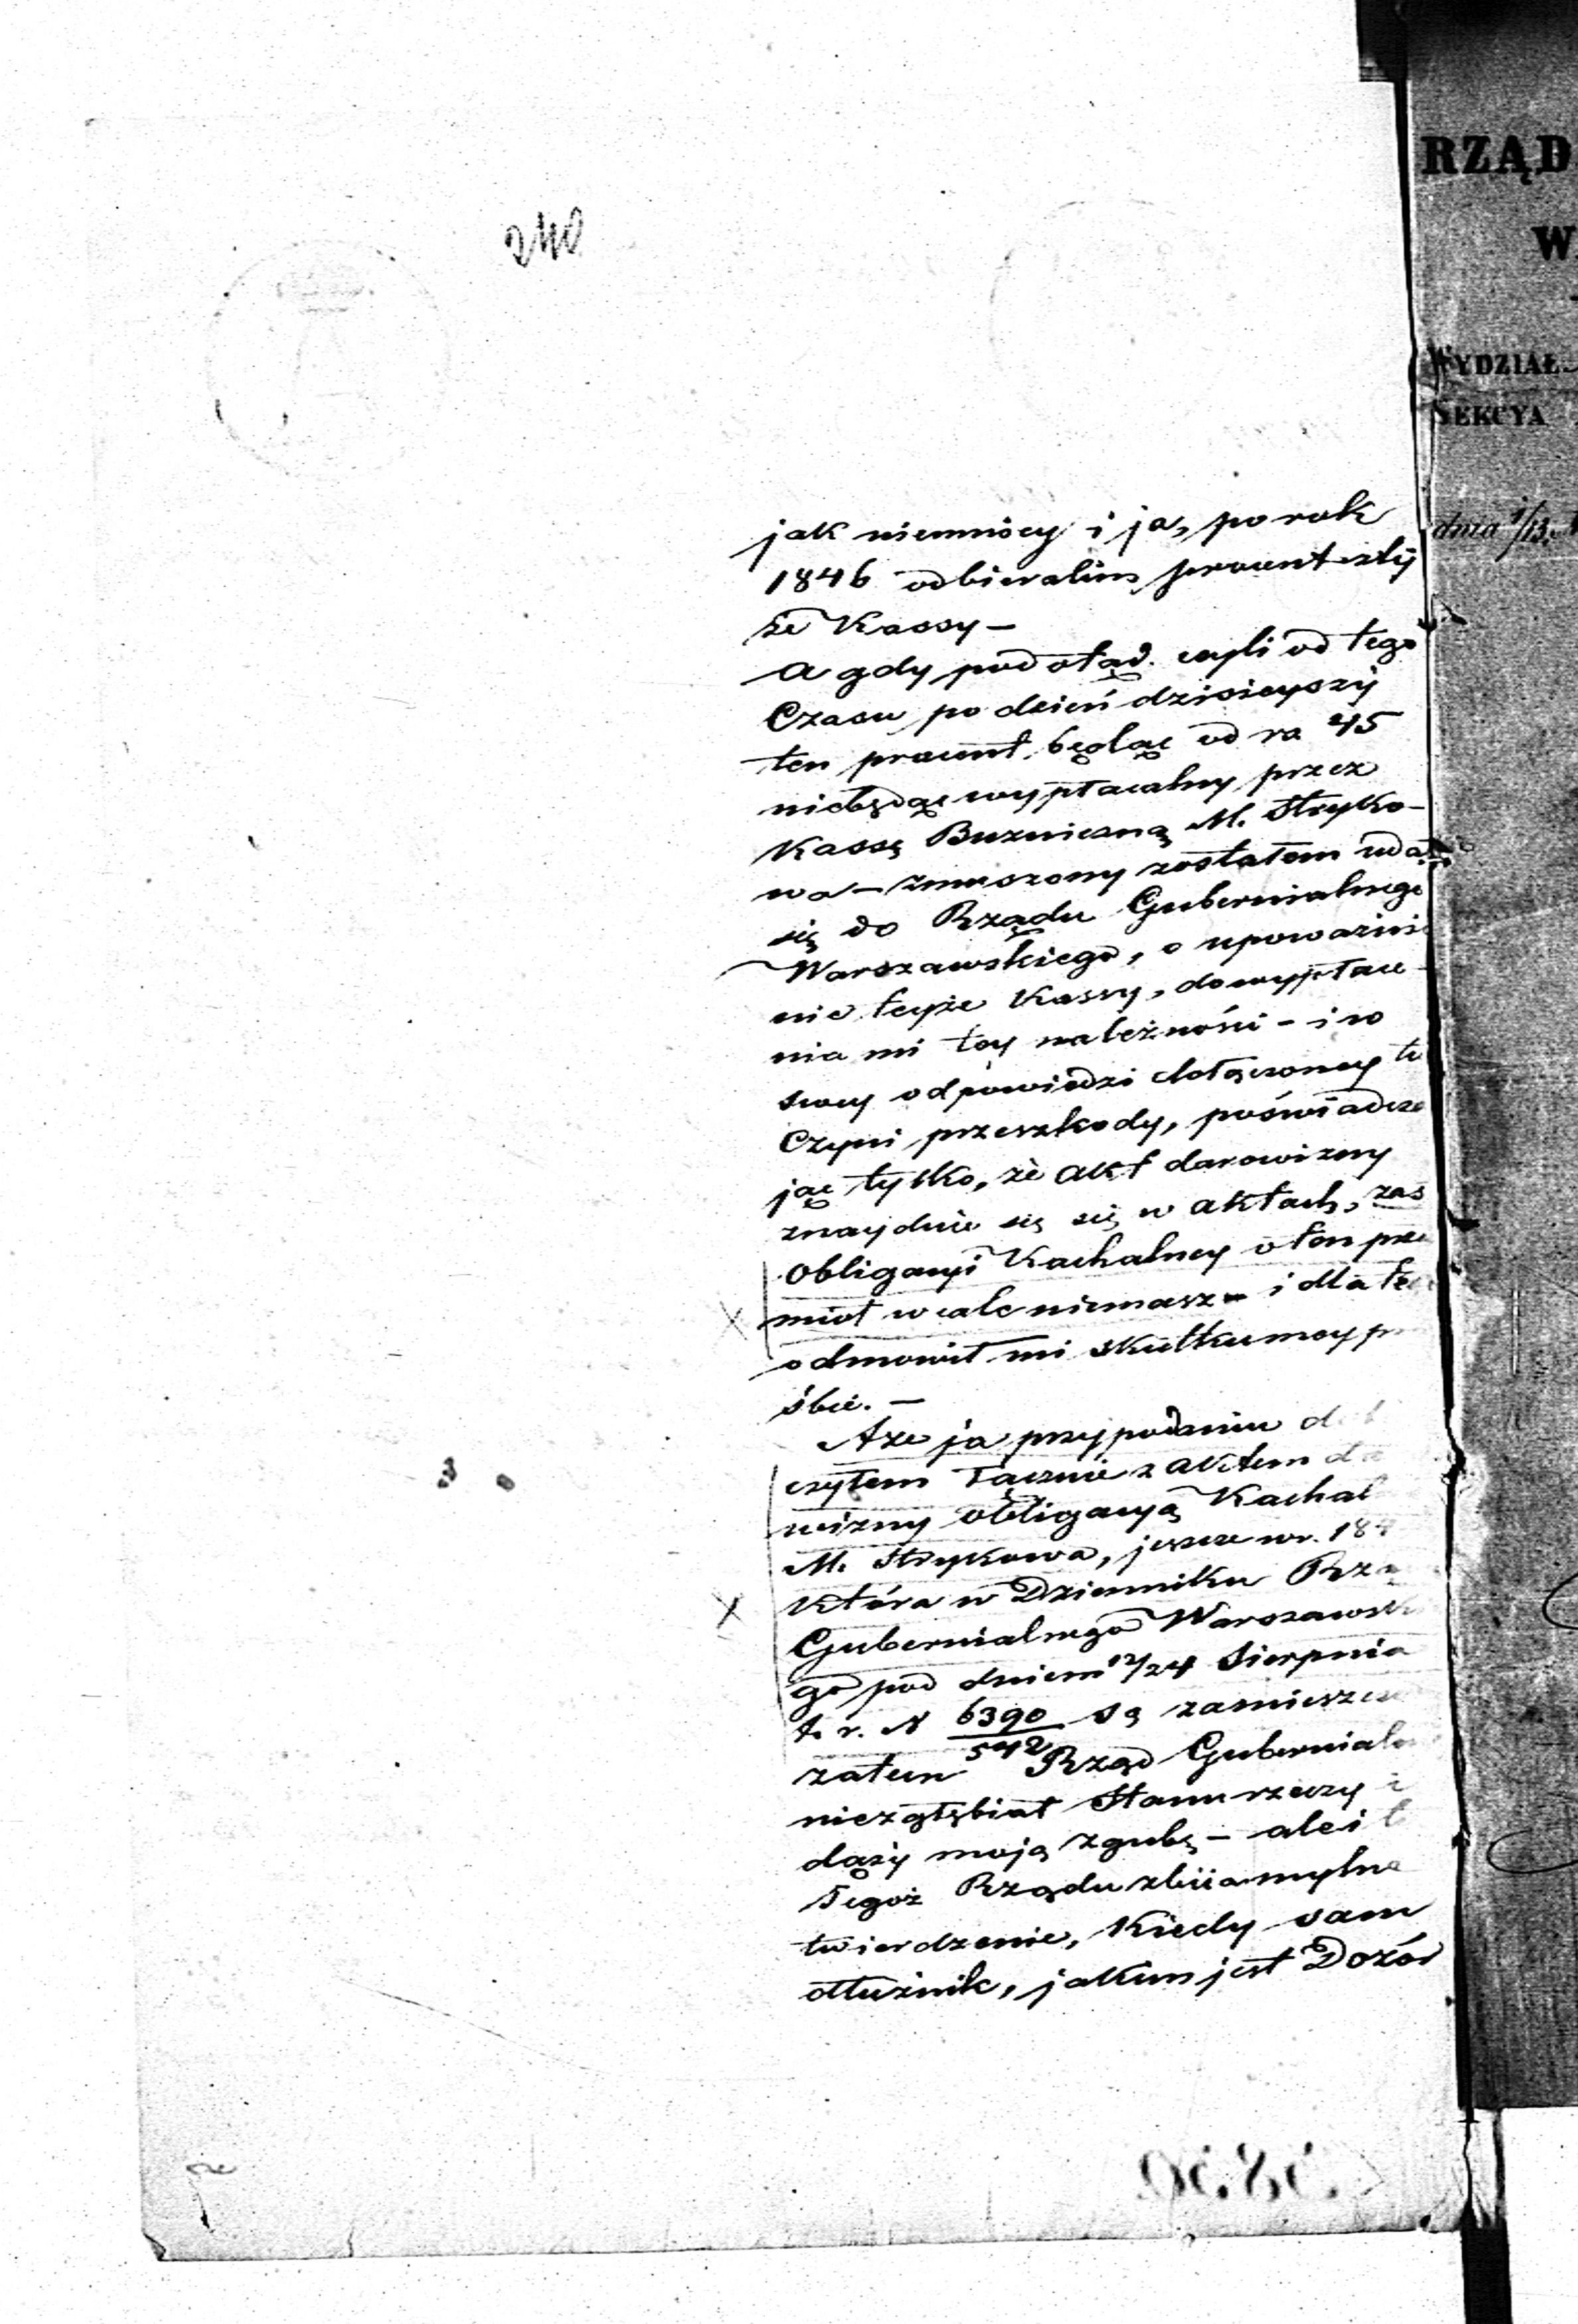 240
RZĄD
W
WYDZIAŁ
SEKCYA
dnia 1/13
jak niemniey i ja, po rok
1846 odbieralim procent z téj
że Kassy —
a gdy pod otąd. czyli od tego
Czasu po dzień dzisieyszy
ten procent, będąc od ra 45
niebędąc wypłacalny przez
Kassę Buzniczną M. Stryko-
wa — zmuszony zostałem udać
się do Rządu Gubernialnego
Warszawskiego, o upoważnie
nie teyże Kassy, do wypłace-
nia mi tey należności — i w
swey odpowiedzi dołączoney tu
Czyni przeszkody, poświadcza
jąc tylko, że akt darowizny
znayduie się się w aktach, zaś
Obligacyi Kachalney o ten prze
miot wcale niemasz — i dla te
odmowił mi skutku mey pr
óbie. —
Aże ja przy podaniu do
czyłem łącznie z aktem da
wizny obligacyą Kachal
M. Strykowa, jeszcze w r. 184
która w Dzienniku Rzą
Gubernialnego Warszawski
go pod dniem 12/24 Sierpnia
t. r. N 6390/542 są zamieszcz
zatem Rząd Gubernialn
niezgłębiał Stanu rzeczy i
dąży moją zgubę — ale i t
Tegoż Rządu zbiia mylne
twierdzenie, Kiedy sam
dłużnik, jakim jest Dozór